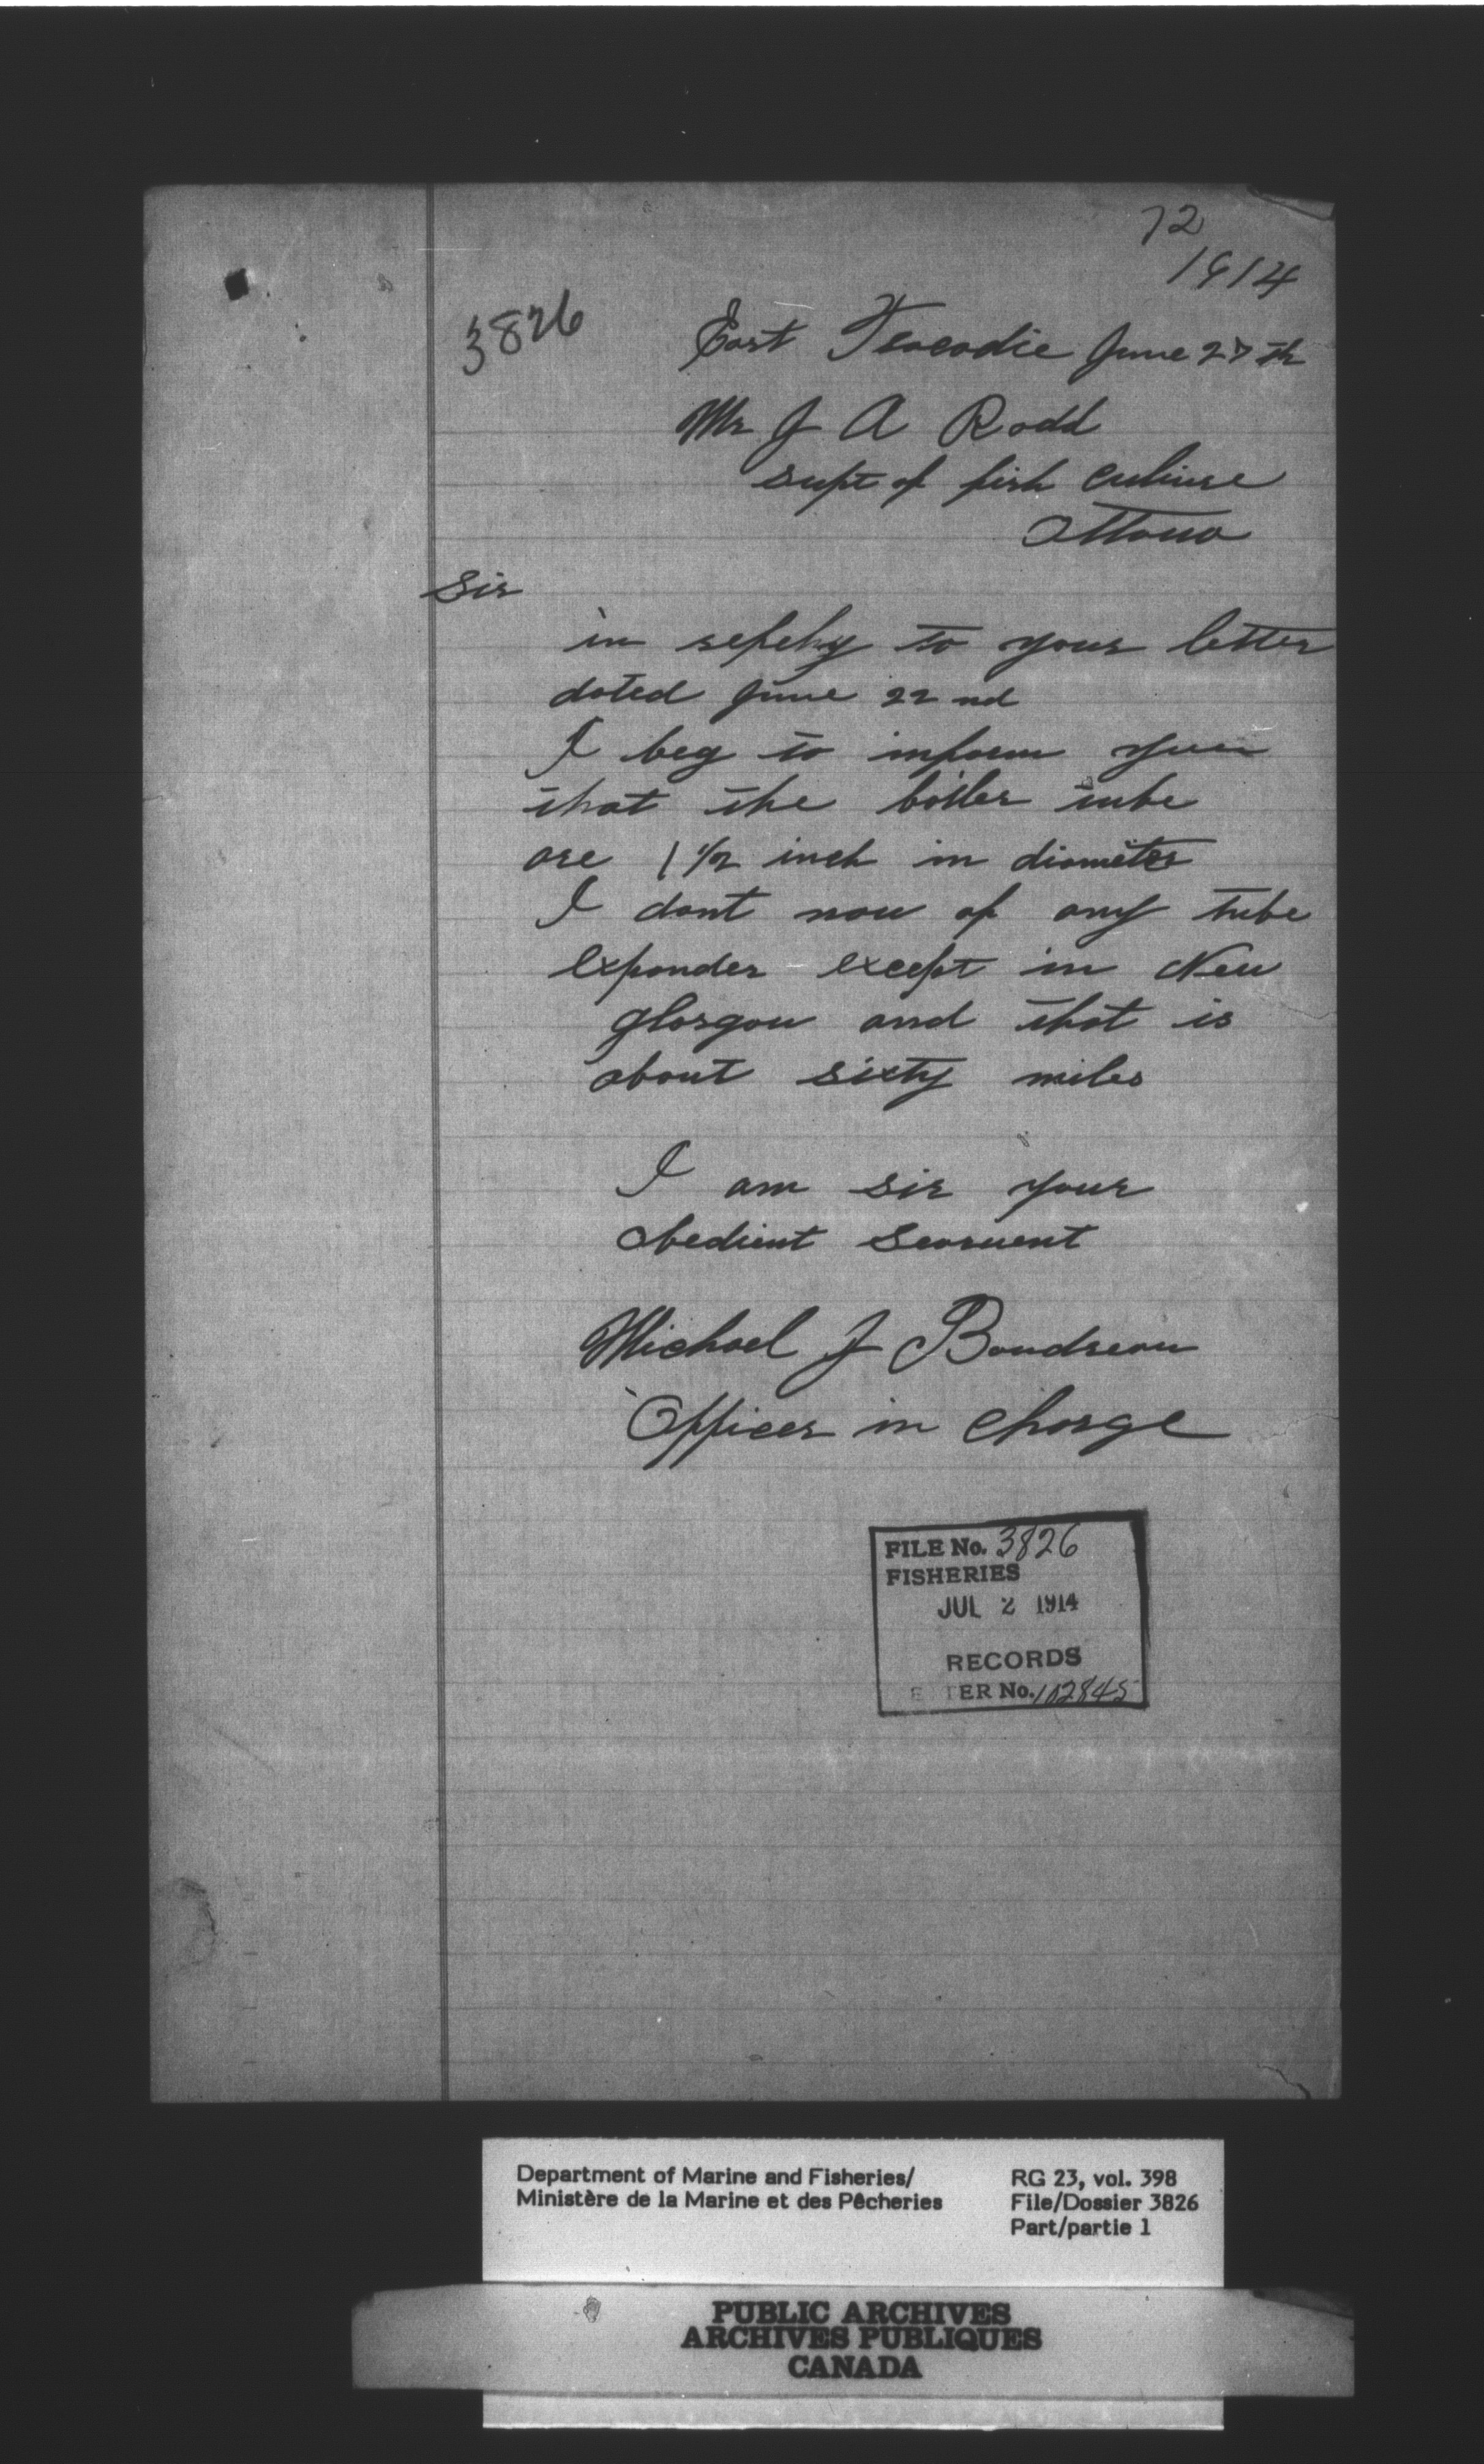 72
1914
3826
East Tracadie June 27th
Mr J A Rodd
supt of fish culture
Ottawa
Sir
in repehy to your letter
dated June 22nd
I beg to inform you
that the boiler tube
are 1 1/2 inch in diameter
I dont now of any tube
expander except in New
glasgow and that is
about sixty miles
I am sir your
obedient Searvent
Michael J Boudreau
Officer in charge
FILE No. 3826
FISHERIES
JUL 2 1914
RECORDS
E TER No. 102845
Department of Marine and Fisheries/
Ministère de la Marine et des Pêcheries
RG 23, vol. 398
File/Dossier 3826
Part/partie 1
PUBLIC ARCHIVES
ARCHIVES PUBLIQUES
CANADA